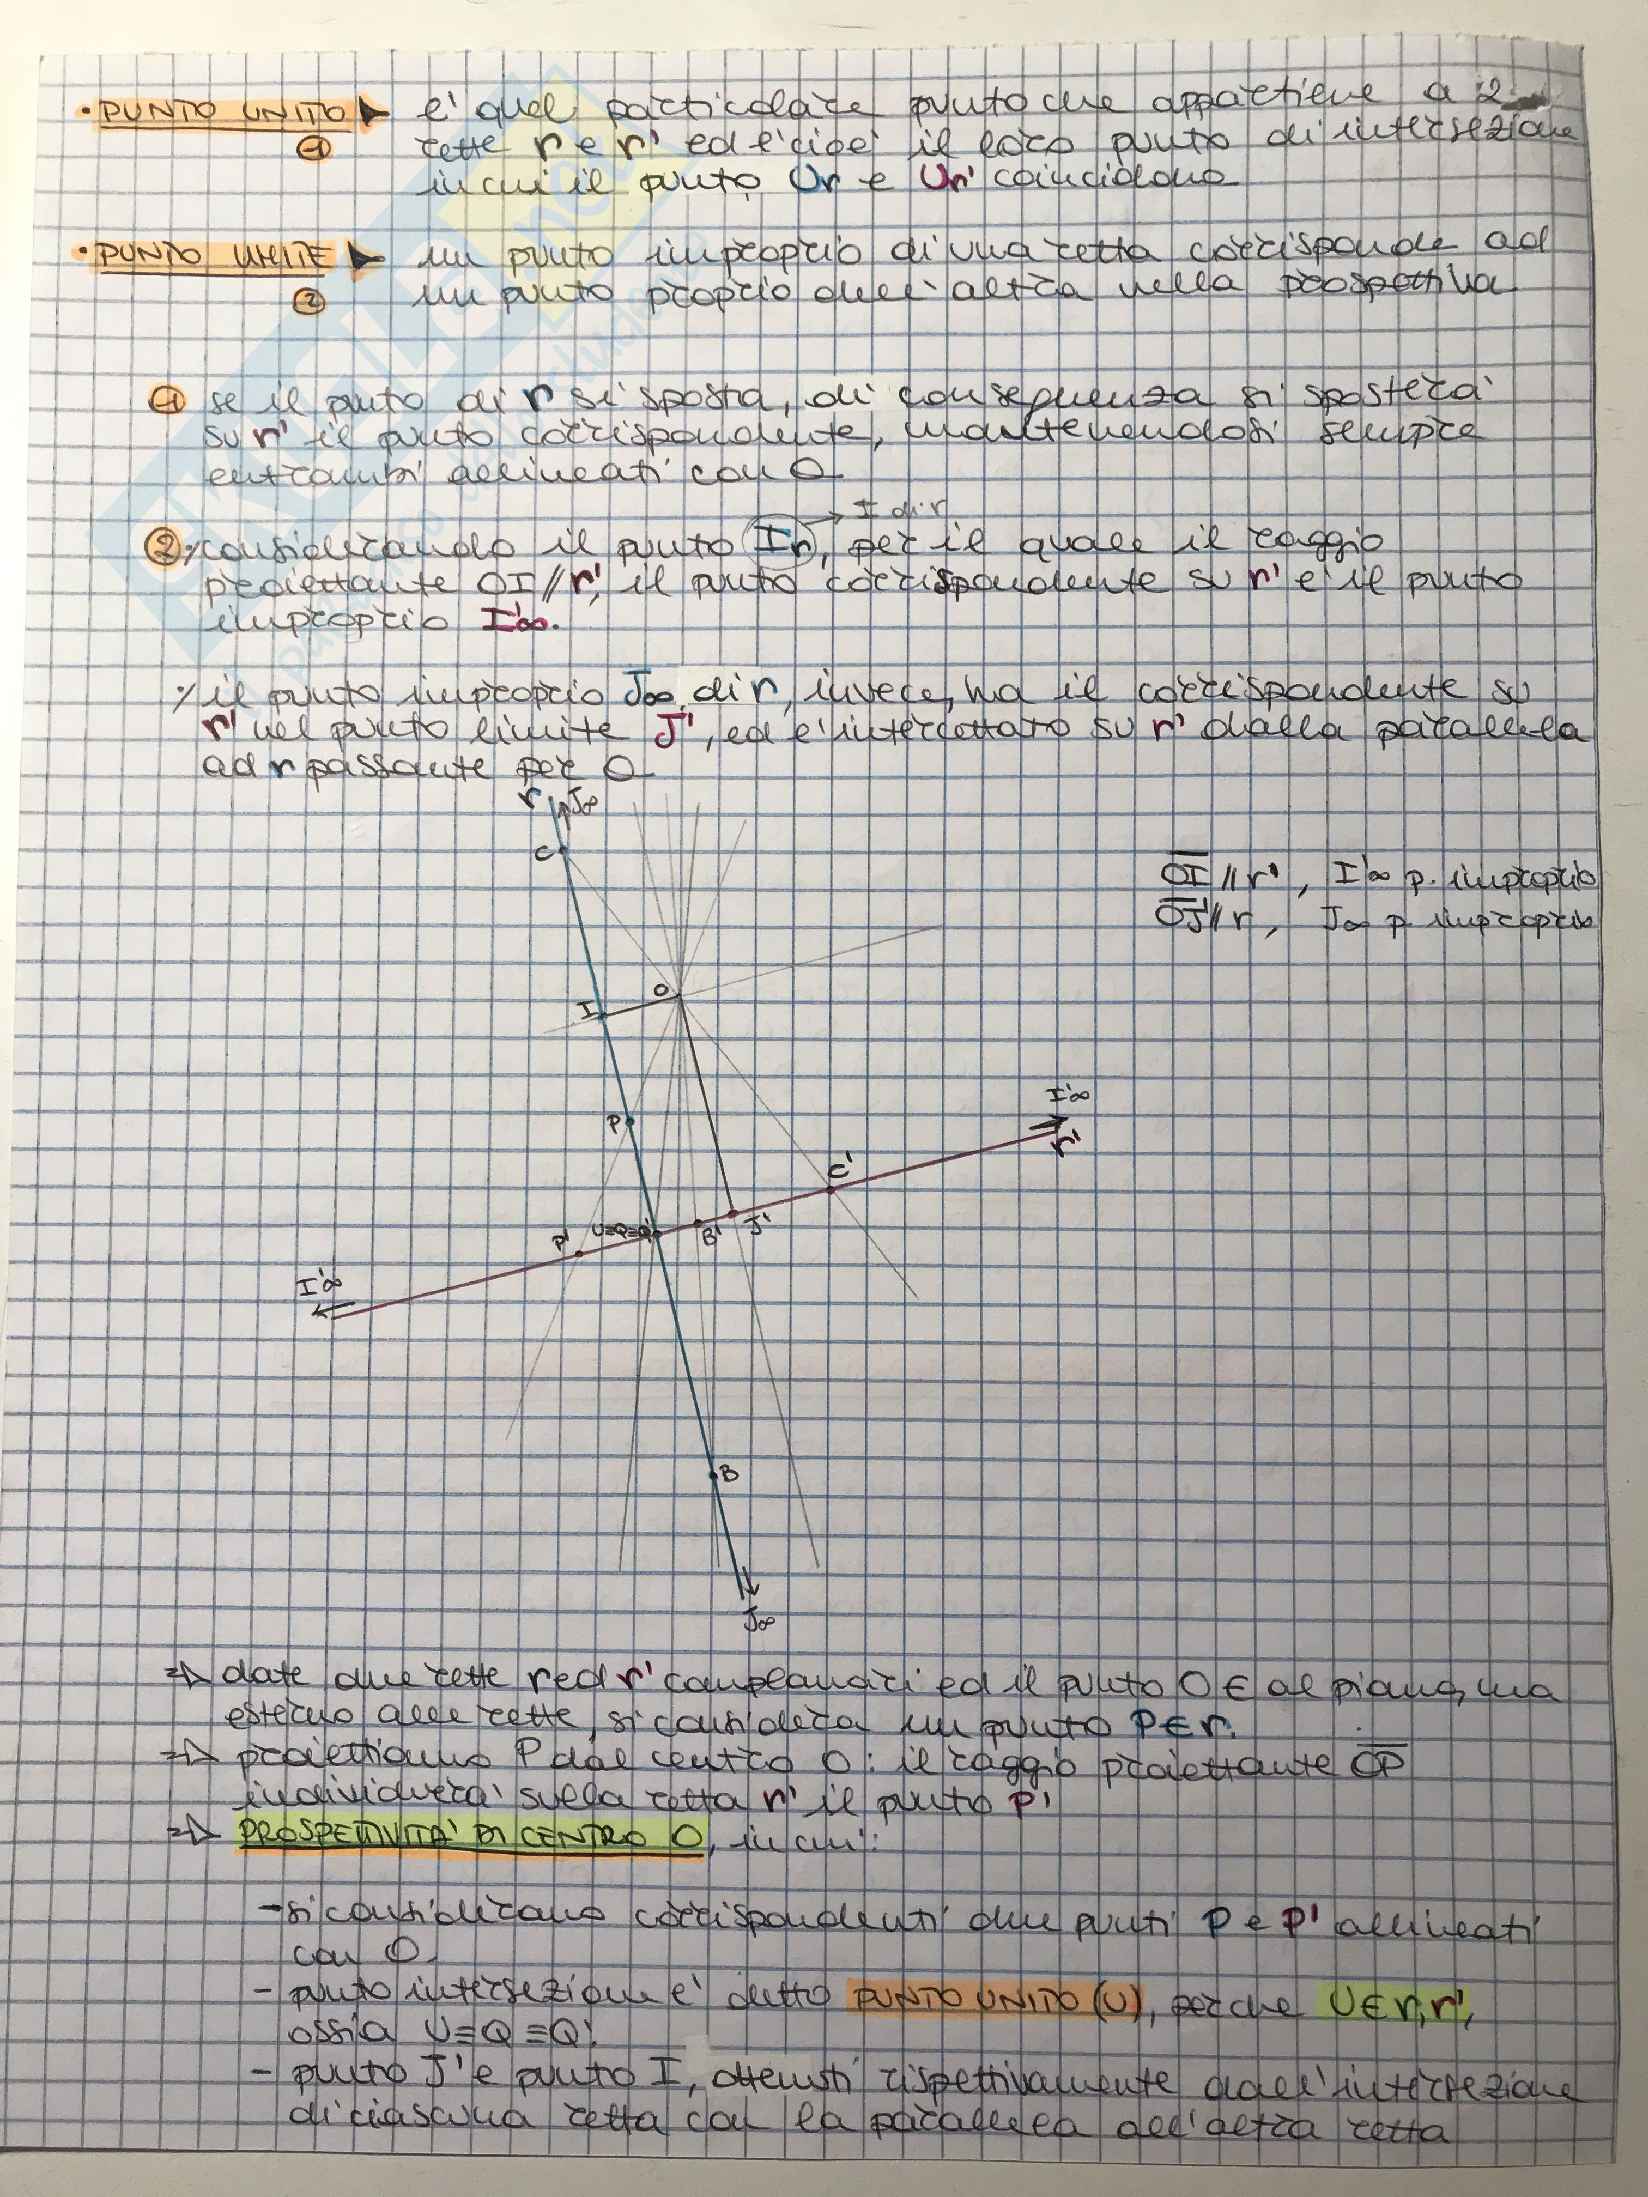 • PUNTO UNITO ► è quel particolare punto che appartiene a 2
① rette r e r' ed è cioè il loro punto di intersezione
in cui il punto Ur e Ur' coincidono
• PUNTO LIMITE ► un punto improprio di una retta corrisponde ad
② un punto proprio dell'altra nella prospettiva
① se il punto di r si sposta, di conseguenza si sposterà
su r' il punto corrispondente, mantenendosi sempre
entrambi allineati con O
I di r
② considerando il punto Ir, per il quale il raggio
proiettante OI // r', il punto corrispondente su r' è il punto
improprio I'∞.
il punto improprio J∞ di r, invece, ha il corrispondente su
r' nel punto limite J', ed è intercettato su r' dalla parallela
ad r passante per O
r J∞
C
OI // r', I'∞ p. improprio
OJ' // r, J∞ p. improprio
O
I
I'∞
P
r'
C'
P' U≡Q≡Q' B' J'
I'∞
B
J∞
⇒ date due rette r ed r' complanari ed il punto O ∈ al piano, ma
esterno alle rette, si considera un punto P ∈ r.
⇒ proiettiamo P dal centro O: il raggio proiettante OP
individuerà sulla retta r' il punto P'
⇒ PROSPETTIVITA' DI CENTRO O, in cui:
- si considerano corrispondenti due punti P e P' allineati
con O
- punto intersezione è detto PUNTO UNITO (U), perche U ∈ r, r',
ossia U ≡ Q ≡ Q'.
- punto J' e punto I, ottenuti rispettivamente dall'intersezione
di ciascuna retta con la parallela all'altra retta